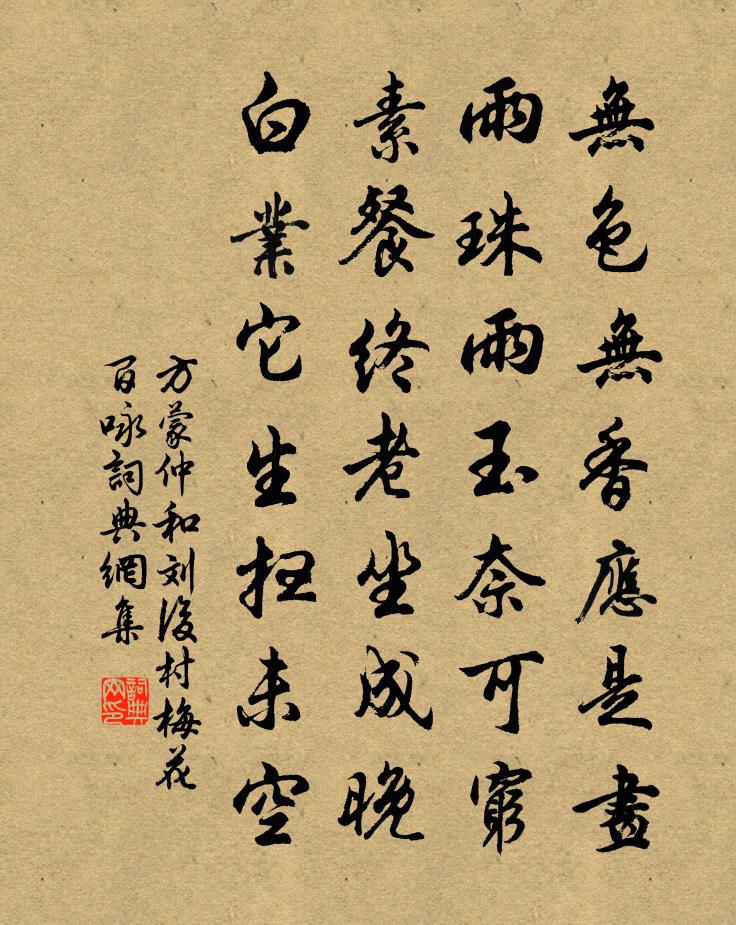 無色無香應是畫
雨珠雨玉奈可窮
素餐終老坐成晚
白業它生扫未空
方蒙仲和刘後村梅花
百咏詞典網集
詞典网印